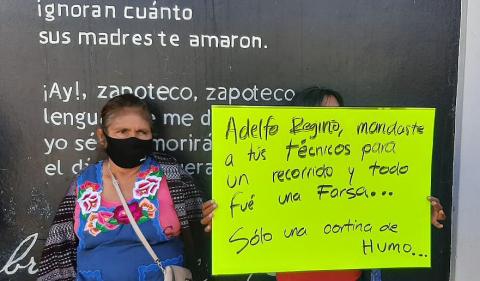 ignoran cuánto
sus madres te amaron.
¡Ay!, zapoteco, zapoteco
lengua que me d
yo sé morirá
el d uera
Adelfo Regino, mandaste
a tus Técnicos para
un recorrido y todo
fué una Farsa...
Sólo una cortina de
Humo...